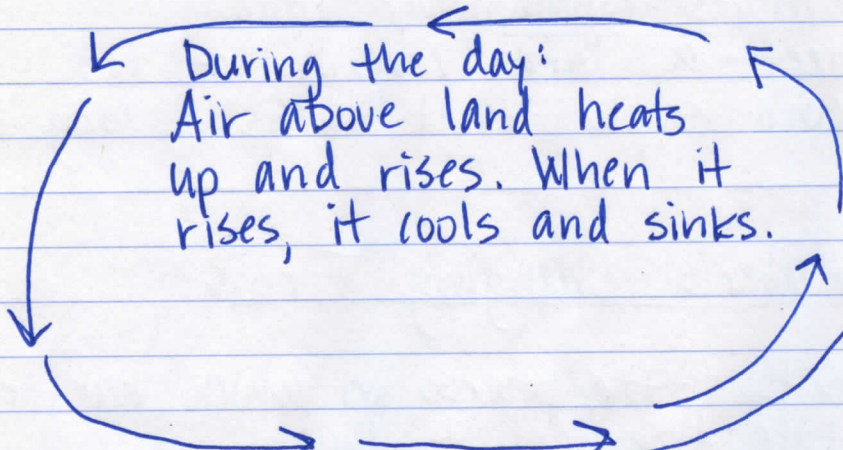 During the day:
Air above land heats
up and rises. When it
rises, it cools and sinks.